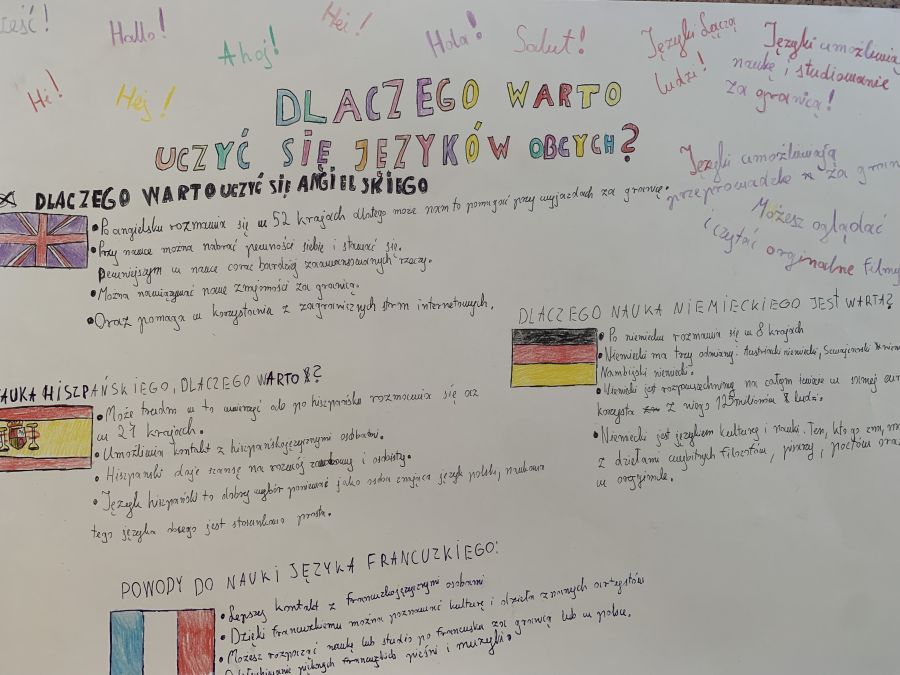 Hallo!
Ahoj!
Hei!
Hola!
Salut!
Hi!
Hej!
Języki łączą
ludzi!
Języki umożliwią
naukę i studiowanie
za granicą!
Języki umożliwiają
przeprowadzkę za
Możesz oglądać
i czytać orginalne filmy
DLACZEGO WARTO
UCZYĆ SIĘ JĘZYKÓW OBCYCH?
DLACZEGO WARTO UCZYĆ SIĘ ANGIELSKIEGO
• Po angielsku rozmawia się w 52 krajach dlatego może nam to pomagać przy wyjazdach za granicę.
• Przy nauce można nabrać pewności siebie i stawać się
pewniejszym w nauce coraz bardziej zaawansowanych rzeczy.
• Można nawiązywać nowe znajomości za granicą.
• Oraz pomaga w korzystaniu z zagranicznych stron internetowych.
DLACZEGO NAUKA NIEMIECKIEGO JEST WARTA?
• Po niemiecku rozmawia się w 8 krajach
• Niemiecki ma trzy odmiany: Austriacki niemiecki, Szwajcarski
Nambijski niemiecki.
• Niemiecki jest rozpowszechniony na całym świecie w samej
korzysta z niego 125 milionów ludzi.
• Niemiecki jest językiem kultury i nauki. Ten, kto go zna,
z dziełami wybitnych filozofów, pisarzy, poetów oraz
w oryginale.
NAUKA HISZPAŃSKIEGO, DLACZEGO WARTO?
• Może trudno w to uwierzyć ale po hiszpańsku rozmawia się aż
w 21 krajach.
• Umożliwia kontakt z hiszpańskojęzycznymi osobami.
• Hiszpański daje szansę na rozwój zawodowy i osobisty.
• Język hiszpański to dobry wybór ponieważ jako osoba znająca język polski, nauka
tego języka obcego jest stosunkowo prosta.
POWODY DO NAUKI JĘZYKA FRANCUZKIEGO:
• Lepszy kontakt z francuzkojęzycznymi osobami
• Dzięki francuzkiemu można poznawać kulturę i dzieła znanych artystów
• Możesz rozpocząć naukę lub studia po francusku za granicą lub w polsce.
pięknych francuzkich pieśni i muzyki.